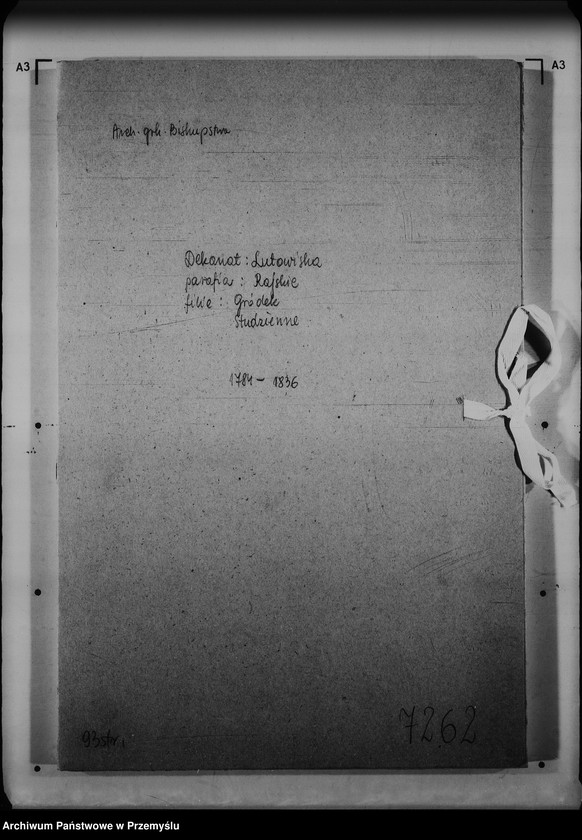 A3
A3
Arch. grk. Biskupstwa
Dekanat : Lutowiska
parafia : Rajskie
filie : Gródek
Studzienne
1784 - 1836
93 str.
7262
Archiwum Państwowe w Przemyślu